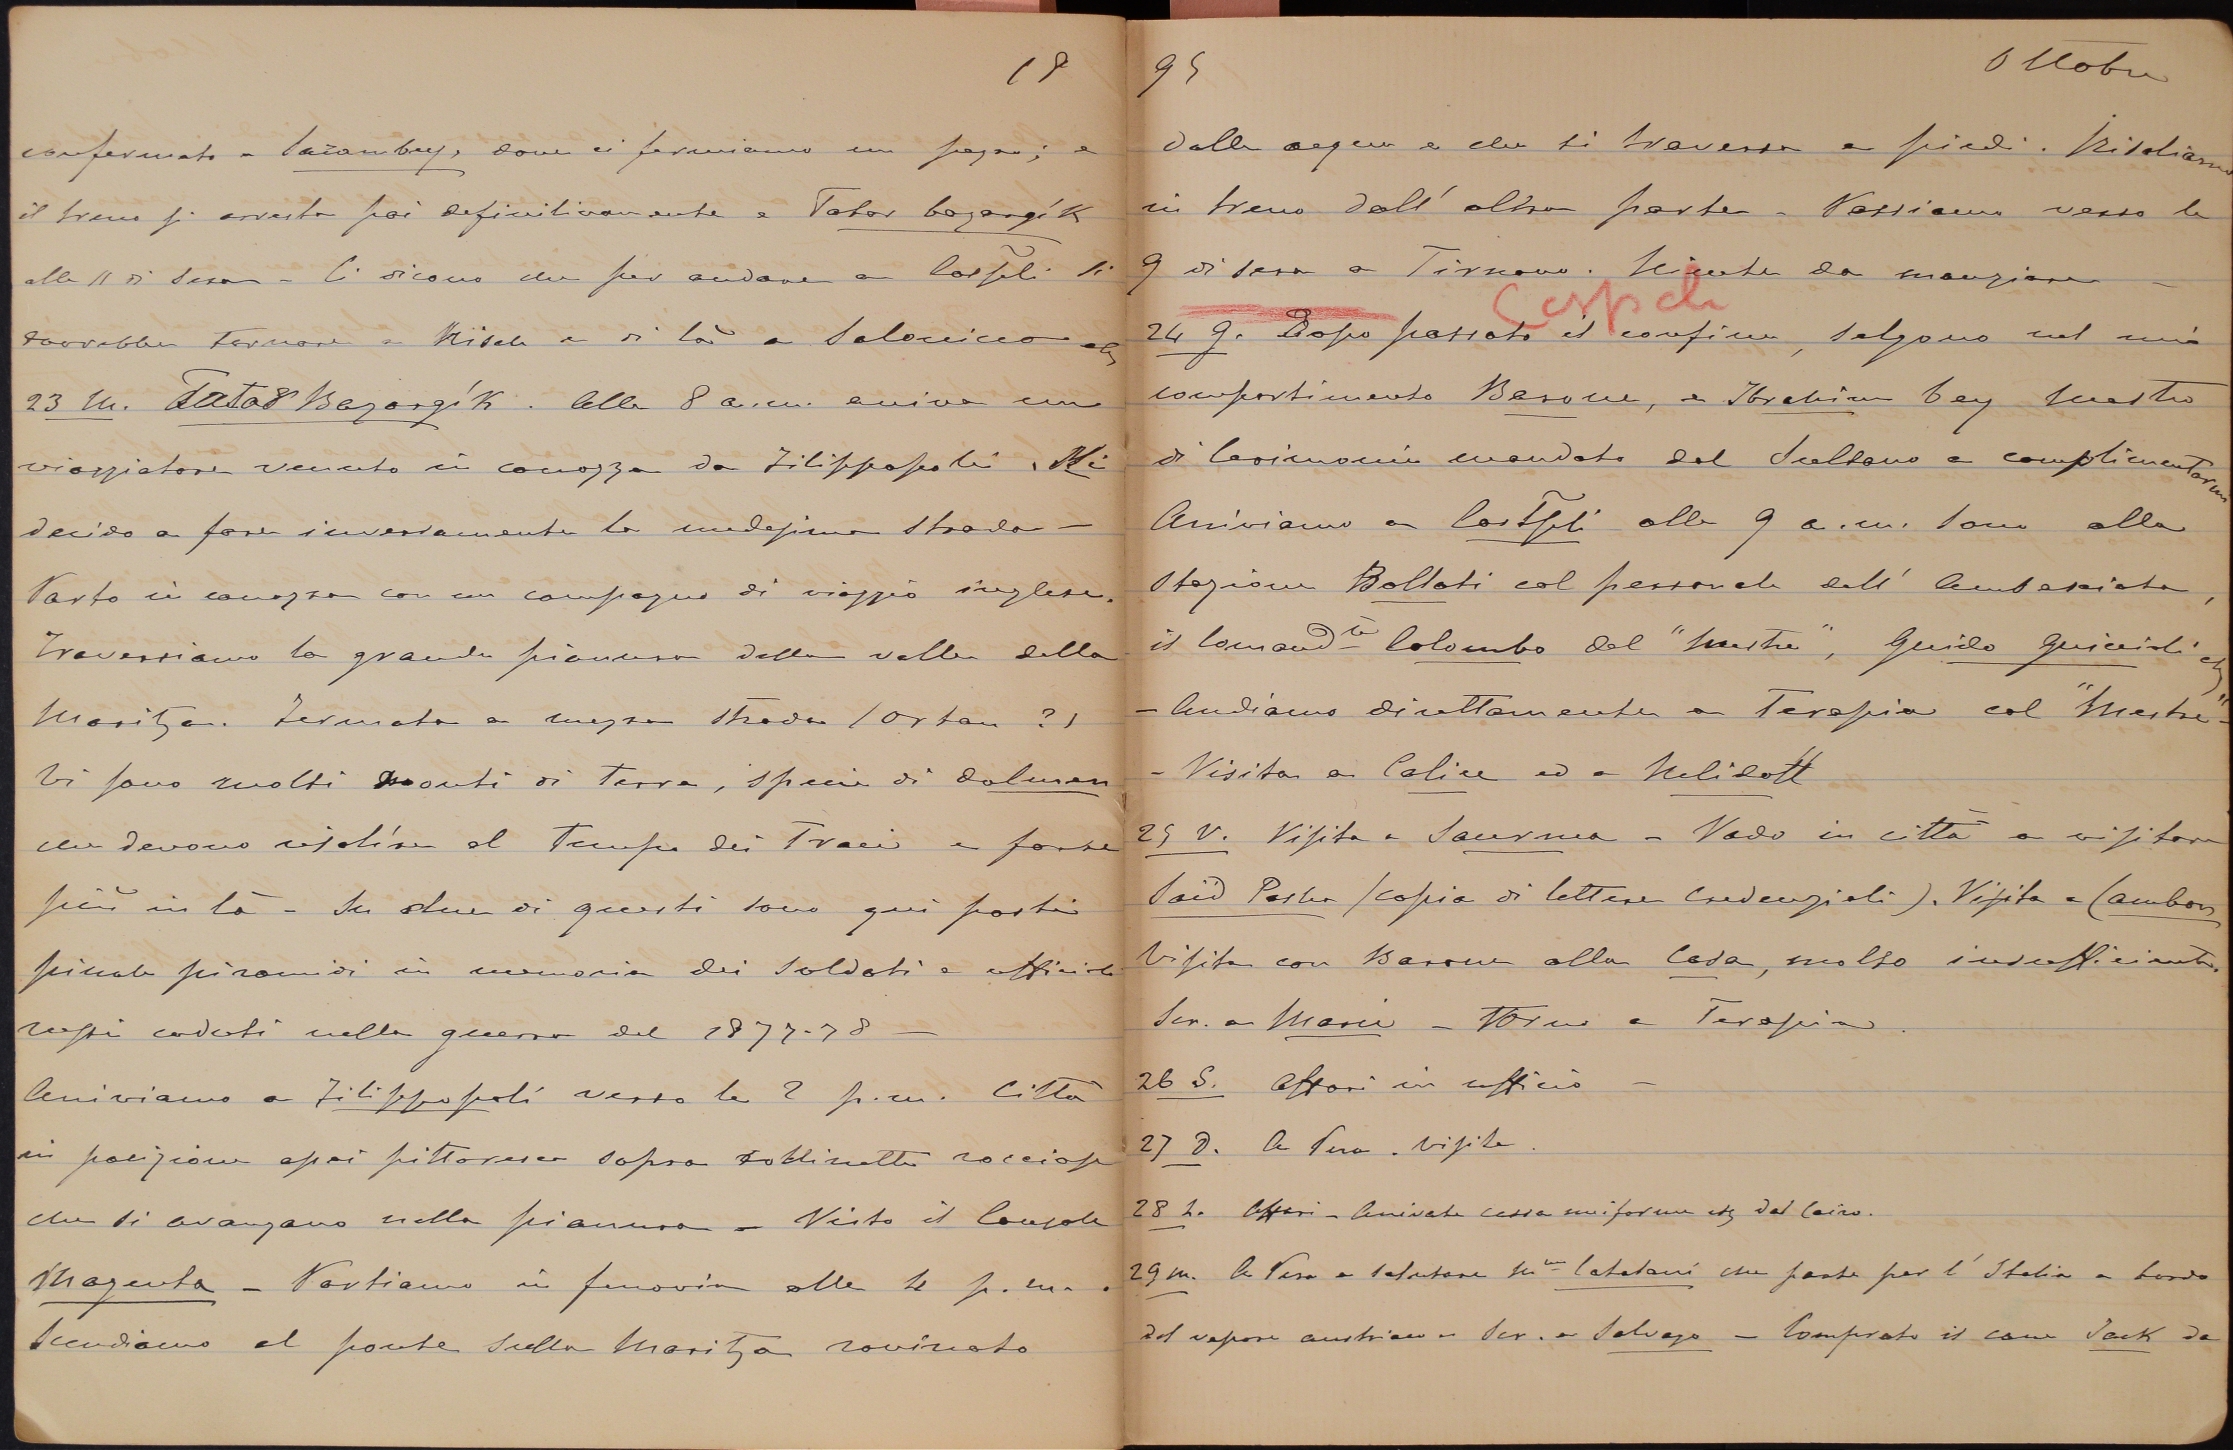 18
confermato a Sarambey, dove ci fermiamo un pezzo; e
il treno si arresta poi definitivamente a Tatar bazargik
alle 11 di sera - Ci dicono che per andare a Costpli si
dovrebbe tornare a Nisch e di là a Salonicco etc
23 M. Tatar Bazargik. Alle 8 a.m. arriva un
viaggiatore venuto in carrozza da Filippopoli. Mi
decido a fare inversamente la medesima strada -
Parto in carrozza con un compagno di viaggio inglese.
Traversiamo la grande pianura della valle della
Maritza. Fermata a mezza strada (Ortan ?)
Vi sono molti monti di terra, specie di dolmen
che devono risalire al tempo dei Traci e forse
più in là - Su due di questi sono qui posti
piccole piramidi in memoria dei soldati e ufficiali
russi caduti nella guerra del 1877-78 -
Arriviamo a Filippopoli verso le 2 p.m. Città
in posizione assai pittoresca sopra collinette rocciose
che si avanzano nella pianura - Visto il Console
Magenta - Partiamo in ferrovia alle 4 p.m.
Scendiamo al ponte sulla Maritza rovinato
95
Ottobre
dalle acque e che si traversa a piedi. Risaliamo
in treno dall'altra parte - Passiamo verso le
9 di sera a Tirnovo. Niente da mangiare -
Cospoli
24 G. Dopo passato il confine, salgono nel mio
compartimento Barone, e Ibrahim bey Mastro
di Cerimonie mandato dal Sultano a complimentarmi
Arriviamo a Costpli alle 9 a.m. Sono alla
Stazione Bollati col personale dell'Ambasciata,
il Comandte Colombo del "Mestre", Guido Guiccioli etc
- Andiamo direttamente a Terapia col "Mestre"-
- Visita a Calice ed a Nelidoff
25 V. Visita a Saurma - Vado in città a visitare
Said Pasha (copia di lettere credenziali). Visita a Cambon
Visita con Barone alla Casa, molto insufficiente.
Scr. a Marie - Torno a Terapia.
26 S. Affari in ufficio -
27 D. A Pera. Visite.
28 L. Affari - Arrivata cassa uniforme etc dal Cairo.
29 M. A Pera a salutare Mme Catalani che parte per l'Italia a bordo
del vapore austriaco - Scr. a Salvago - Comprato il cane Jack da